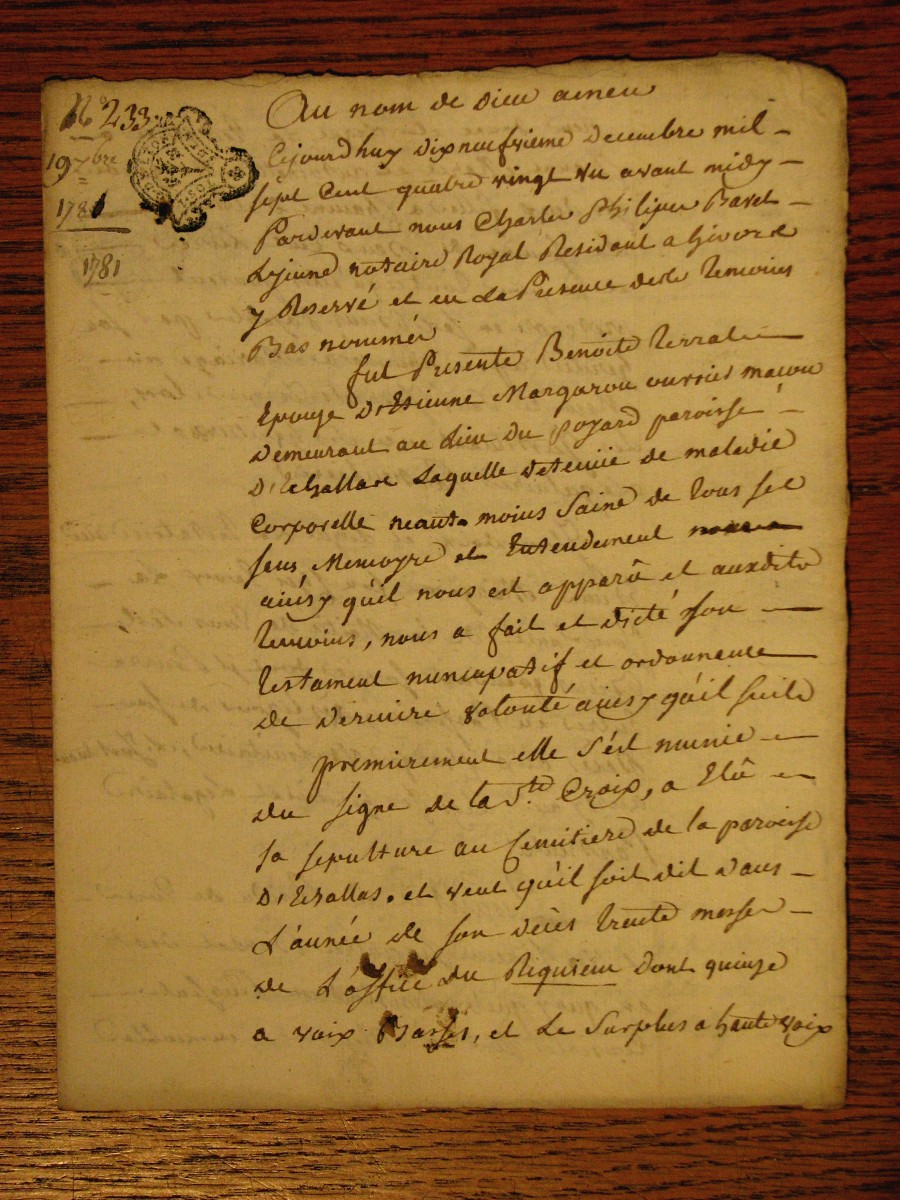 N° 233
19 xbre
1781
1781
Au nom de dieu amen
Cejourdhuy dixneufvieme decembre mil
sept Cent quatre vingt un avant midy
Pardevant nous Charles Philipes Bavet
Lejeune notaire Royal Résidant a Givors
y Réservé et en La Présence des temoins
Bas nommés
fut Présente Benoite
Epouse d'Etienne Margaron ouvrier maçon
Demeurant au Lieu du poyard paroisse
D'Echallas Laquelle detenüe de maladie
Corporelle néant-moins saine de tous ses
sens Memoyre et Entendement
ainsy qu'il nous est apparû et auxdits
temoins, nous a fait et dicté son
testament nuncupatif et ordonnance
de dernire volonté ainsy qu'il suit
premierement elle s'est munie
du signe de la Ste Croix, a Elû
sa sepulture au Cemitiere de la paroisse
D'Echallas. et veut qu'il soit dit dans
L'année de son décès trente messes
de L'office du Requiem dont quinze
a voix Basses, et Le Surplus a haute voix